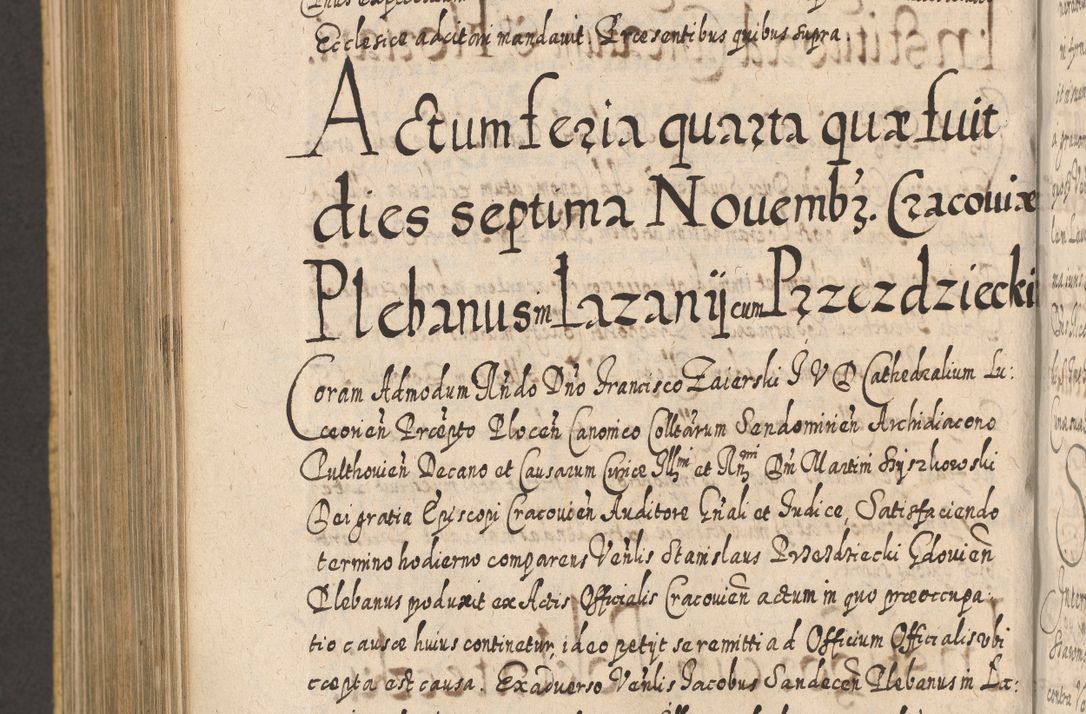 Ecclesiæ ad citoni mandavit. Præsentibus quibus supra.
Actum feria quarta quæ fuit
dies septima Nouembꝫ. Cracouiæ
Plebanus in Lazanij cum Przezdziecki
Coram Admodum Rńdo Dńo Francisco Zaierski I V D Cathedralium Lu:
ceorień Præpto Ploceń Canonico Colltarum Sendomirień Archidiacono
Pulthouień Decano et Causarum Curiæ Illmi et Rꝫmi Dńi Martini Szyszkowski
Dei gratia Episcopi Cracouień Auditore Gńali et Iudice, Satisfaciendo
termino hodierno comparens Veńlis Stanislaus Przezdziecki Gdouień
Plebanus poduxit ex Actis Officialis Cracouień actum in quo præoccupa:
tio causæ huius continetur, ideo petijt se remitti ad Officium Officialis vbi
ccepta est causa. Ex aduerso Veńlis Iacobus Sandeceń Plebanus in La: